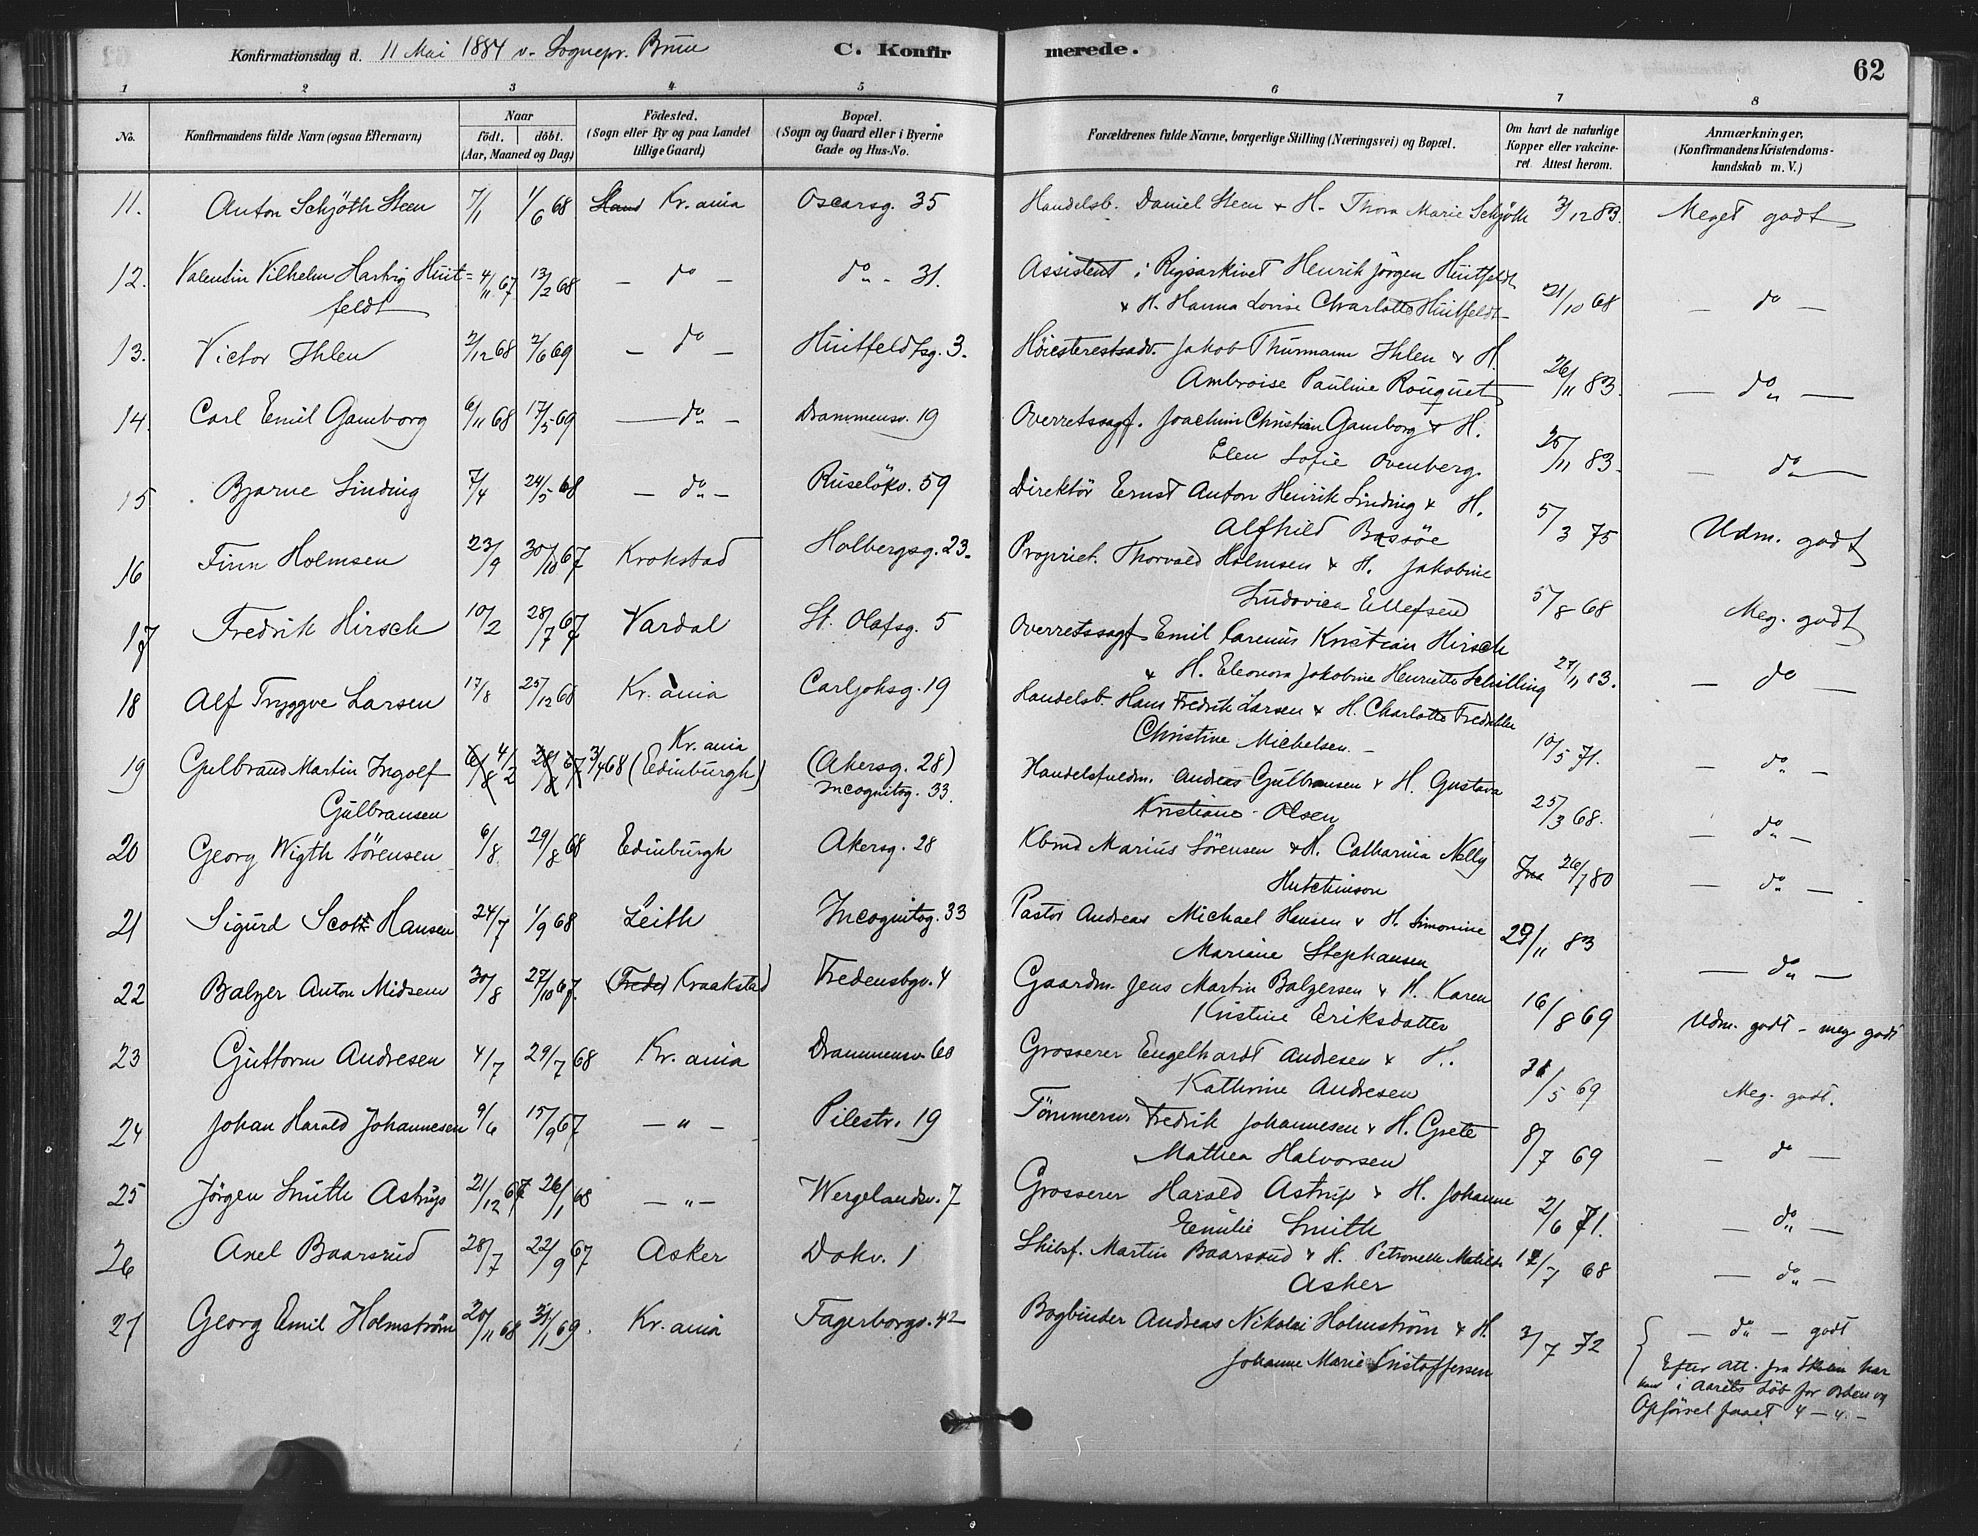 Konfirmationsdag d. 11 Mai 1884 v. Sognepr. Bruu
C. Konfirmerede.
62
1 2 3 4 5 6 7 8
No.
Konfirmandens fulde Navn (ogsaa Efternavn)
Naar
födt. döbt.
(Aar, Maaned og Dag)
Födested.
(Sogn eller By og paa Landet
tillige Gaard)
Bopæl.
(Sogn og Gaard eller i Byerne
Gade og Hus-No.
Forældrenes fulde Navne, borgerlige Stilling (Næringsvei) og Bopæl.
Om havt de naturlige
Kopper eller vakcine-
ret Attest herom.
Anmærkninger.
(Konfirmandens Kristendoms-
kundskab m. V.)
11. Anton Schjöth Steen 7/1 1/6 68 Kr.ania Oscarsg. 35 Handelsb. Daniel Steen & H. Thora Marie Schjöth 3/12 83. Meget godt
12. Valentin Vilhelm Hartvig Huit= 4/11 67 13/2 68 — do — do - 31. Assistent i Rigsarkivet Henrik Jörgen Huitfeldt
feldt & H. Hanna Lovise Charlotte Huitfeldt 21/10 68 — do —
13. Victor Ihlen 2/12 68 2/6 69 — do — Huitfeldtsg. 3. Höiesteretsadv. Jakob Thurmann Ihlen & H.
Ambroise Pauline Rouquet 26/11 83. — do —
14. Carl Emil Gamborg 6/11 68 17/5 69 — do — Drammensv. 19 Overretssagf. Joachim Christian Gamborg & H.
Elen Sofie Ovenberg. 25/11 83. — do —
15 Bjarne Sinding 7/4 24/5 68 — do — Ruselökv. 59 Direktör Ernst Anton Henrik Sinding & H.
Alfhild Bassöe 5/3 75 Udm. godt
16 Finn Holmsen 23/9 30/10 67 Krokstad Holbergsg. 23. Propriet. Thorvald Holmsen & H. Jakobine
Ludovica Ellefsen 5/8 68 Meg. godt
17 Fredrik Hirsch 10/2 28/7 67 Vardal St. Olafsg. 5 Overretssagf. Emil Carenius Kristian Hirsch
& H. Eleonora Jakobine Henriette Schilling 27/11 83. — do —
18 Alf Tryggve Larsen 17/8 25/12 68 Kr.ania Carljohsg. 19 Handelsb. Hans Fredrik Larsen & H. Charlotte Fredrikke
Christine Michelsen. — 10/5 71. — do —
19 Gulbrand Martin Ingolf 6/8 4/2 28/8 67 3/4 68 Kr.ania (Edinburgh) (Akersg. 28) Handelsfuldm. Andreas Gulbransen & H. Gustava
Gulbransen Incognitog. 33. Kristiane Olsen 25/3 68. — do —
20 Georg Wigth Sörensen 6/8. 29/8 68 Edinburgh Akersg. 28 Kbmd Marius Sörensen & H. Catharina Nelly
Hutchinson 26/7 80 — do —
21 Sigurd Scott Hansen 24/7 1/9 68 Leith Incognitog. 33 Pastor Andreas Michael Hansen & H. Simonine
Mariane Stephansen 29/11 83 — do —
22 Balzer Anton Midsem 30/8 27/10 67. Kraakstad Fredensbgv. 4 Gaardm. Jens Martin Balzersen & H. Karen
Kristine Eriksdatter 16/8 69 Udm. godt - meg. godt
23 Guttorm Andresen 4/7 29/7 68 Kr.ania Drammensv. 60 Grosserer Engelhardt Andresen & H.
Kathrine Andresen 31/5 69 Meg. godt.
24 Johan Harald Johannesen 9/6 15/9 67 — " — Pilestr. 19 Tömmerm. Fredrik Johannesen & H. Grete
Mathea Halvorsen 8/7 69 — do —
25 Jörgen Smith Astrup 21/12 67 26/1 68 — " — Wergelandsv. 7 Grosserer Harald Astrup & H. Johanne
Emilie Smith 2/6 71. — do —
26 Axel Baarsrud 28/7 22/9 67 Asker Dokv. 1 Skibsf. Martin Baarsrud & H. Petronelle Matilde
Asker 12/7 68 — do —
27 Georg Emil Holmström 30/11 68 31/1 69. Kr.ania Fagerborgv. 42 Bogbinder Andreas Nikolai Holmström & H.
Johanne Marie Kristoffersen 3/7 72 — do — godt
Efter att. fra Skolen har
han i Aarets Löb for Orden og
Opförsel faaet 4 — 4. —